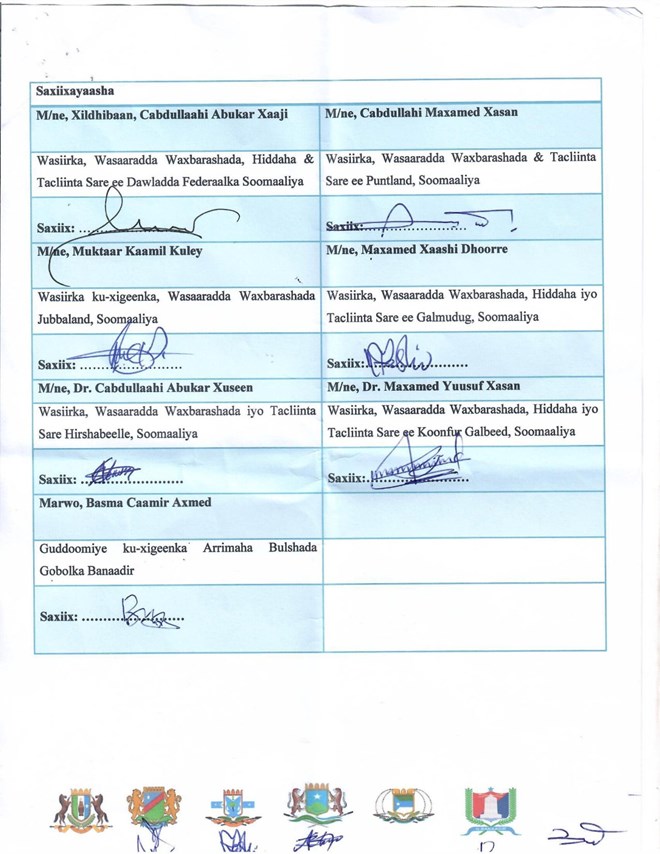 Saxiixayaasha
M/ne, Xildhibaan, Cabdullaahi Abukar Xaaji
Wasiirka, Wasaaradda Waxbarashada, Hiddaha &
Tacliinta Sare ee Dawladda Federaalka Soomaaliya
Saxiix: ...
M/ne, Cabdullahi Maxamed Xasan
Wasiirka, Wasaaradda Waxbarashada & Tacliinta
Sare ee Puntland, Soomaaliya
Saxiix:..........................
M/ne, Muktaar Kaamil Kuley
Wasiirka ku-xigeenka, Wasaaradda Waxbarashada
Jubbaland, Soomaaliya
Saxiix: ..........................
M/ne, Maxamed Xaashi Dhoorre
Wasiirka, Wasaaradda Waxbarashada, Hiddaha iyo
Tacliinta Sare ee Galmudug, Soomaaliya
Saxiix:..........................
M/ne, Dr. Cabdullaahi Abukar Xuseen
Wasiirka, Wasaaradda Waxbarashada iyo Tacliinta
Sare Hirshabeelle, Soomaaliya
Saxiix: ..........................
M/ne, Dr. Maxamed Yuusuf Xasan
Wasiirka, Wasaaradda Waxbarashada, Hiddaha iyo
Tacliinta Sare ee Koonfur Galbeed, Soomaaliya
Saxiix:..........................
Marwo, Basma Caamir Axmed
Guddoomiye ku-xigeenka Arrimaha Bulshada
Gobolka Banaadir
Saxiix: ..........................